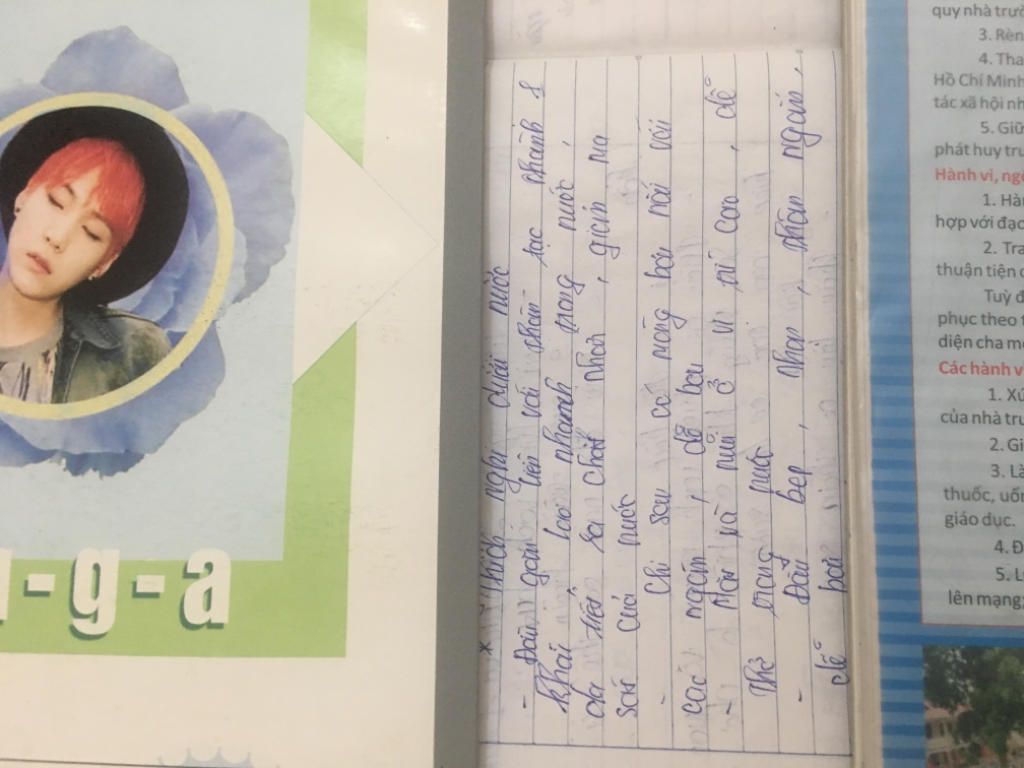 u-g-a
* Thích nghi dưới nước
- Đầu gắn liền với thân tạc thành 1
khối lao nhanh trong nước.
da tiết ra chất nhờn, giảm ma
sát của nước
- Chi sau có màng bơi nối với
các ngón, dễ bơi
- Mắt và mũi ở vị trí cao, dễ
thở trong nước
- Đầu bẹp, nhọn, thon ngắn,
dễ bơi
quy nhà trườ
3. Rèn
4. Tha
Hồ Chí Minh
tác xã hội nh
5. Giữ
phát huy tru
Hành vi, ngô
1. Hàn
hợp với đạo
2. Tra
thuận tiện c
Tuỳ đ
phục theo t
diện cha mẹ
Các hành v
1. Xú
của nhà trư
2. Gi
3. Là
thuốc, uốn
giáo dục.
4. Đ
5. Lu
lên mạng;